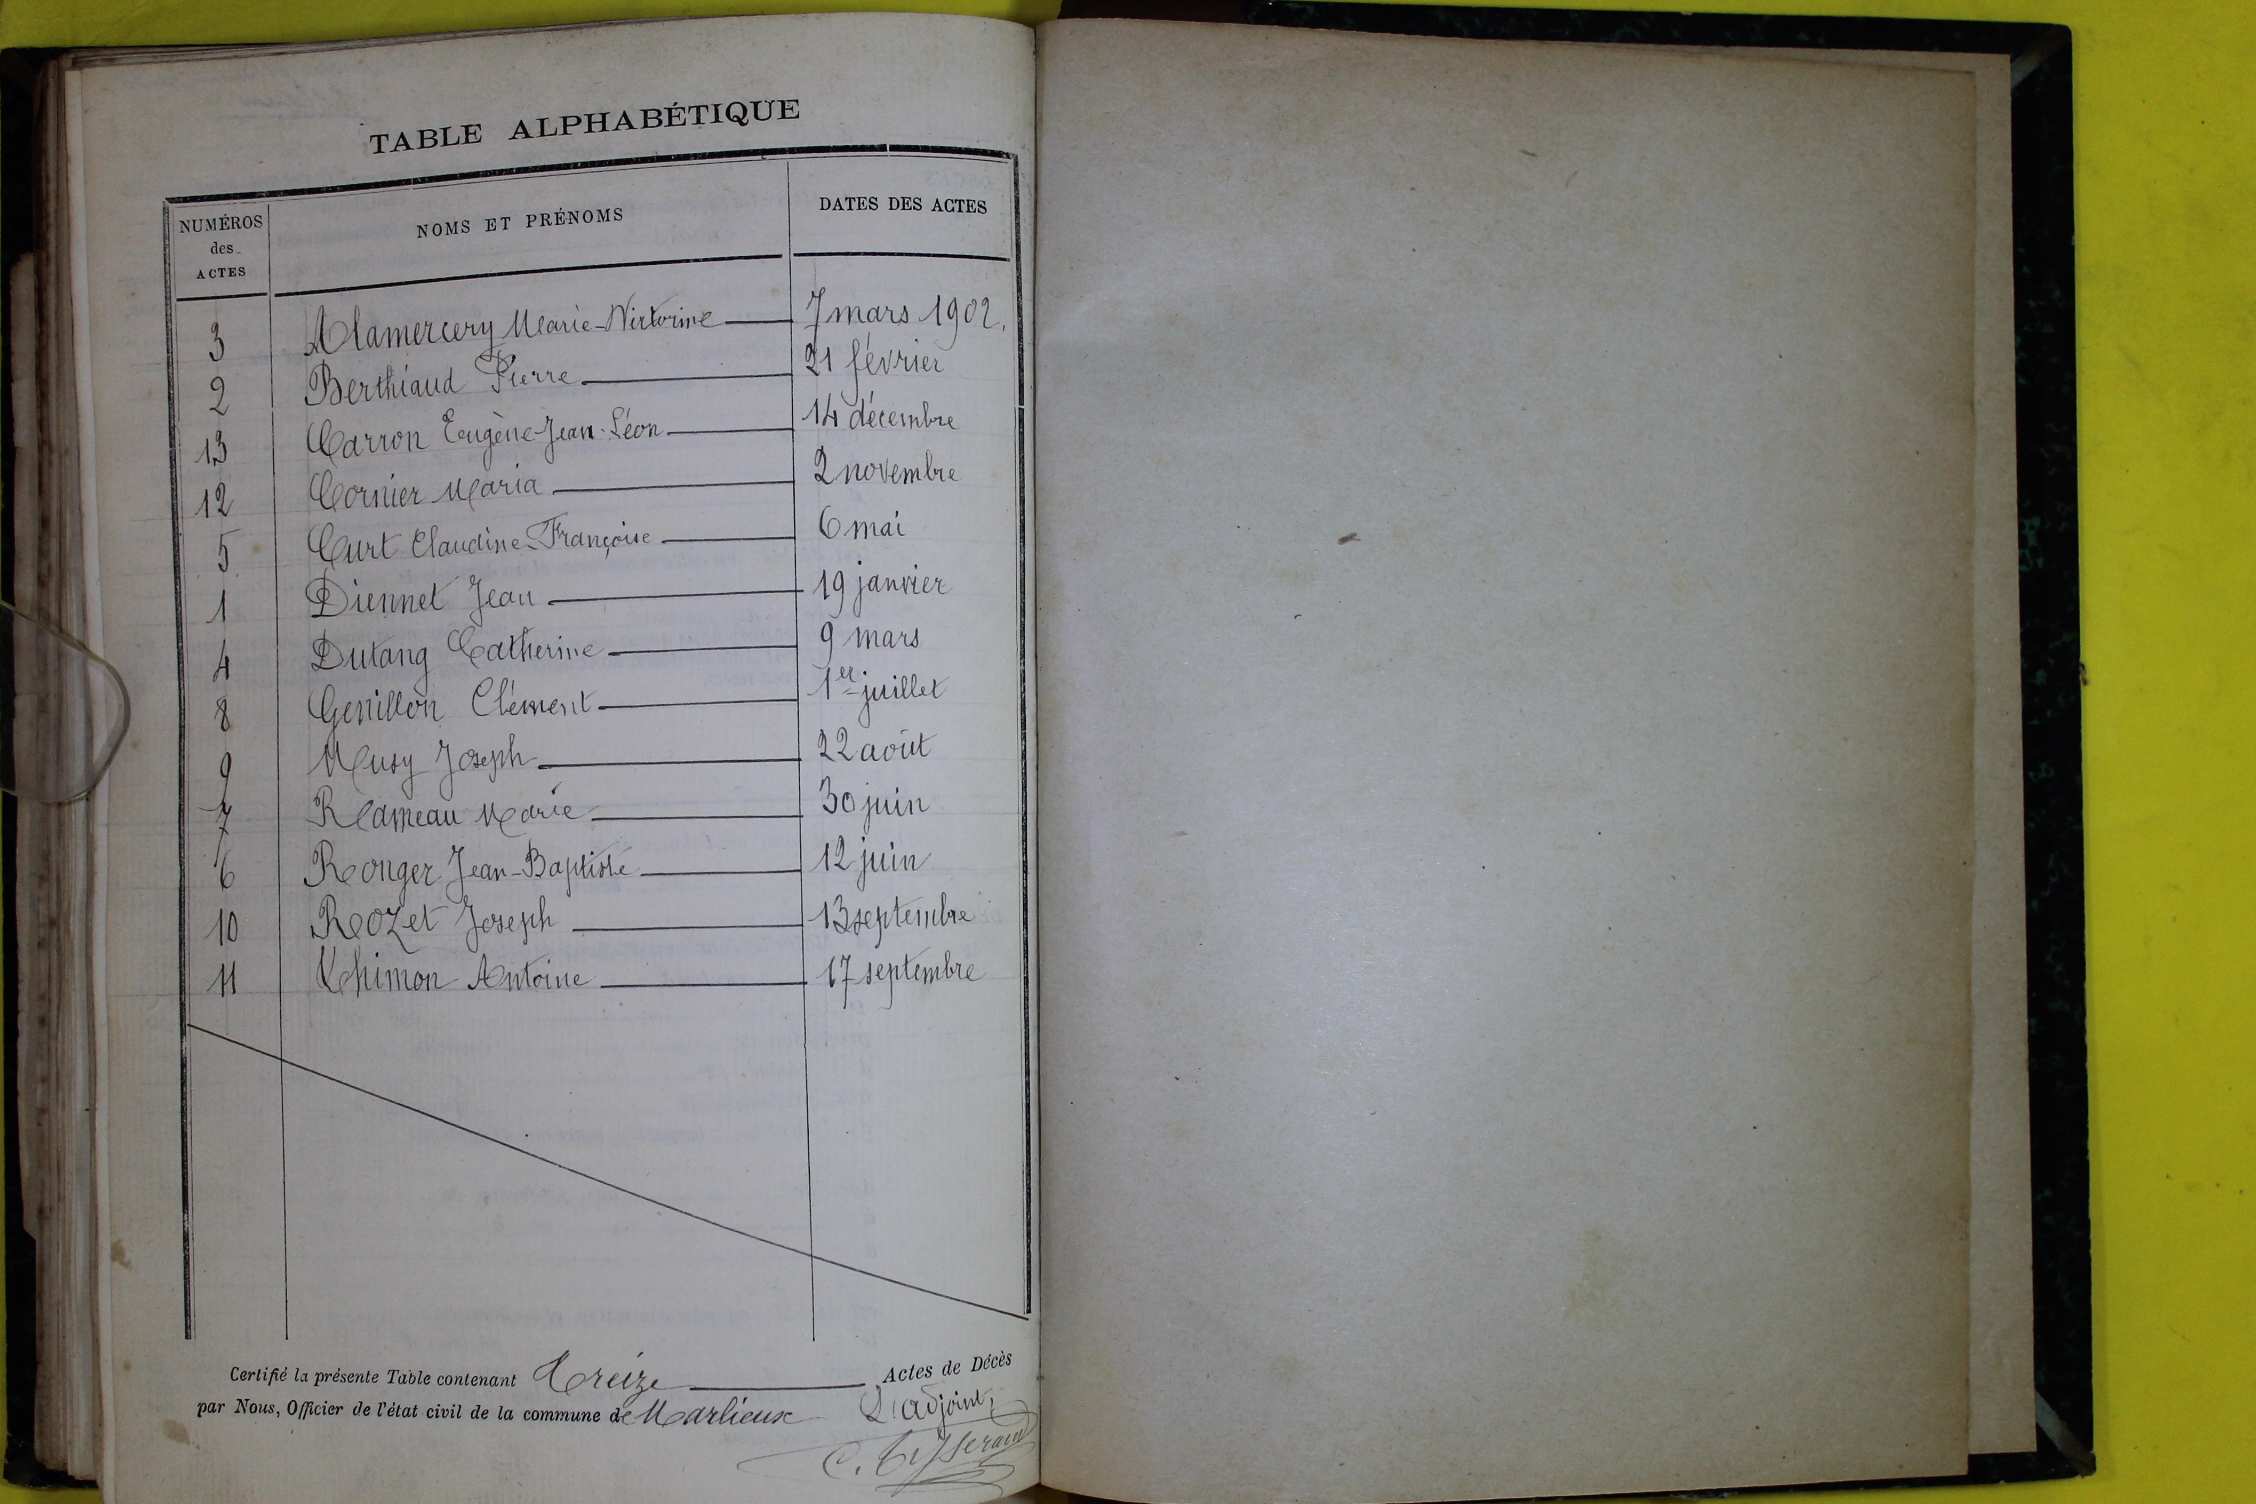 TABLE ALPHABÉTIQUE
NUMÉROS des ACTES NOMS ET PRÉNOMS DATES DES ACTES
3 Alamercery Marie-Victorine 7 mars 1902.
2 Berthiaud Pierre 21 février
13 Carron Eugène-Jean-Léon 14 décembre
12 Cornier Maria 2 novembre
5 Curt Claudine-Françoise 6 mai
1 Diennet Jean 19 janvier
4 Dutang Catherine 9 mars
8 Genillon Clément 1er juillet
9 Musy Joseph 22 août
7 Rameau Marie 30 juin
6 Ronger Jean-Baptiste 12 juin
10 Rozet Joseph 13 septembre
11 Antoine 17 septembre
Certifié la présente Table contenant Treize Actes de Décès
par Nous, Officier de l'état civil de la commune de Marlieux L'adjoint,
C. Tisserand